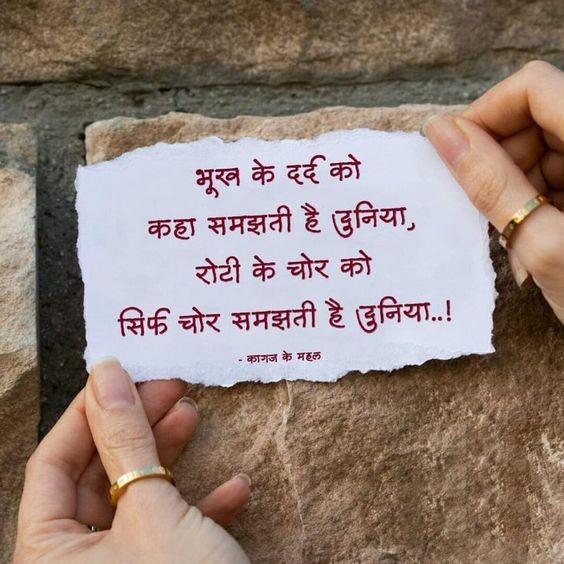 भूख के दर्द को
कहा समझती है दुनिया,
रोटी के चोर को
सिर्फ चोर समझती है दुनिया..!
- कागज के महल